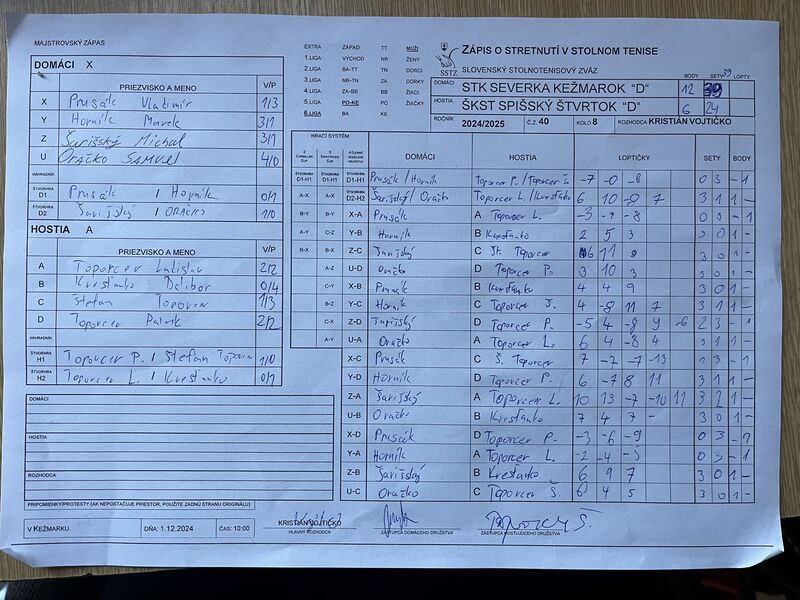 MAJSTROVSKÝ ZÁPAS
EXTRA ZÁPAD TT MUŽI
1.LIGA VÝCHOD NR ŽENY
2.LIGA BA-TT TN DORCI
3.LIGA NR-TN ZA DORKY
4.LIGA ZA-BB BB ŽIACI
5.LIGA PO-KE PO ŽIAČKY
6.LIGA BA KE
SSTZ
ZÁPIS O STRETNUTÍ V STOLNOM TENISE
SLOVENSKÝ STOLNOTENISOVÝ ZVÄZ
BODY SETY 39 LOPTY
DOMÁCI STK SEVERKA KEŽMAROK "D" 12
HOSTIA ŠKST SPIŠSKÝ ŠTVRTOK "D" 6 24
ROČNÍK 2024/2025 Č.Z. 40 KOLO 8 ROZHODCA KRISTIÁN VOJTIČKO
DOMÁCI X
PRIEZVISKO A MENO V/P
X Prusák Vladimír 1/3
Y Horník Marek 3/1
Z Šarišský Michal 3/1
U Oračko SAMUEL 4/0
NÁHRADNÍK
ŠTVORHRA D1 Prusák / Horník 0/1
ŠTVORHRA D2 Šarišský / ORAČKO 1/0
HOSTIA A
PRIEZVISKO A MENO V/P
A Toporcer Ladislav 2/2
B Kresťanko Dalibor 0/4
C Štefan Toporcer 1/3
D Toporcer Patrik 2/2
NÁHRADNÍK
ŠTVORHRA H1 Toporcer P. / Štefan Toporcer 1/0
ŠTVORHRA H2 Toporcer L. / Kresťanko 0/1
DOMÁCI
HOSTIA
ROZHODCA
PRIPOMIENKY/PROTESTY (AK NEPOSTAČUJE PRIESTOR, POUŽITE ZADNÚ STRANU ORIGINÁLU)
V KEŽMARKU DŇA: 1.12.2024 ČAS: 10:00
HRACÍ SYSTÉM DOMÁCI HOSTIA LOPTIČKY SETY BODY
ŠTVORHRA D1-H1 ŠTVORHRA D1-H1 ŠTVORHRA D1-H1 Prusák / Horník Toporcer P. / Toporcer Š. -7 -0 -8 0 3 - 1
A-X A-X ŠTVORHRA D2-H2 Šarišský / Oračko Toporcer L. / Kresťanko 6 10 -8 7 3 1 1 -
B-Y B-Y X-A Prusák A Toporcer L. -3 -7 -8 0 3 - 1
A-Y C-Z Y-B Horník B Kresťanko 2 5 3 3 0 1 -
B-X B-X Z-C Šarišský C Št. Toporcer 6 11 8 3 0 1 -
A-Z U-D Oračko D Toporcer P. 3 10 3 3 0 1 -
C-Y X-B Prusák B Kresťanko 4 4 9 3 0 1 -
B-Z Y-C Horník C Toporcer Š. 4 -8 11 7 3 1 1 -
C-X Z-D Šarišský D Toporcer P. -5 4 -8 9 -6 2 3 - 1
A-Y U-A Oračko A Toporcer L. 6 4 -8 4 3 1 1 -
X-C Prusák C Š. Toporcer 7 -7 -7 -13 1 3 - 1
Y-D Horník D Toporcer P. 6 -7 8 11 3 1 1 -
Z-A Šarišský A Toporcer L. 10 13 -7 -10 11 3 2 1 -
U-B Oračko B Kresťanko 7 4 7 - 3 0 1 -
X-D Prusák D Toporcer P. -3 -6 -9 0 3 - 1
Y-A Horník A Toporcer L. -2 -4 -5 0 3 - 1
Z-B Šarišský B Kresťanko 6 9 7 3 0 1 -
U-C Oračko C Toporcer Š. 6 4 5 3 0 1 -
KRISTIÁN VOJTIČKO
HLAVNÝ ROZHODCA
ZÁSTUPCA DOMÁCEHO DRUŽSTVA
Toporcer Š.
ZÁSTUPCA HOSŤUJÚCEHO DRUŽSTVA